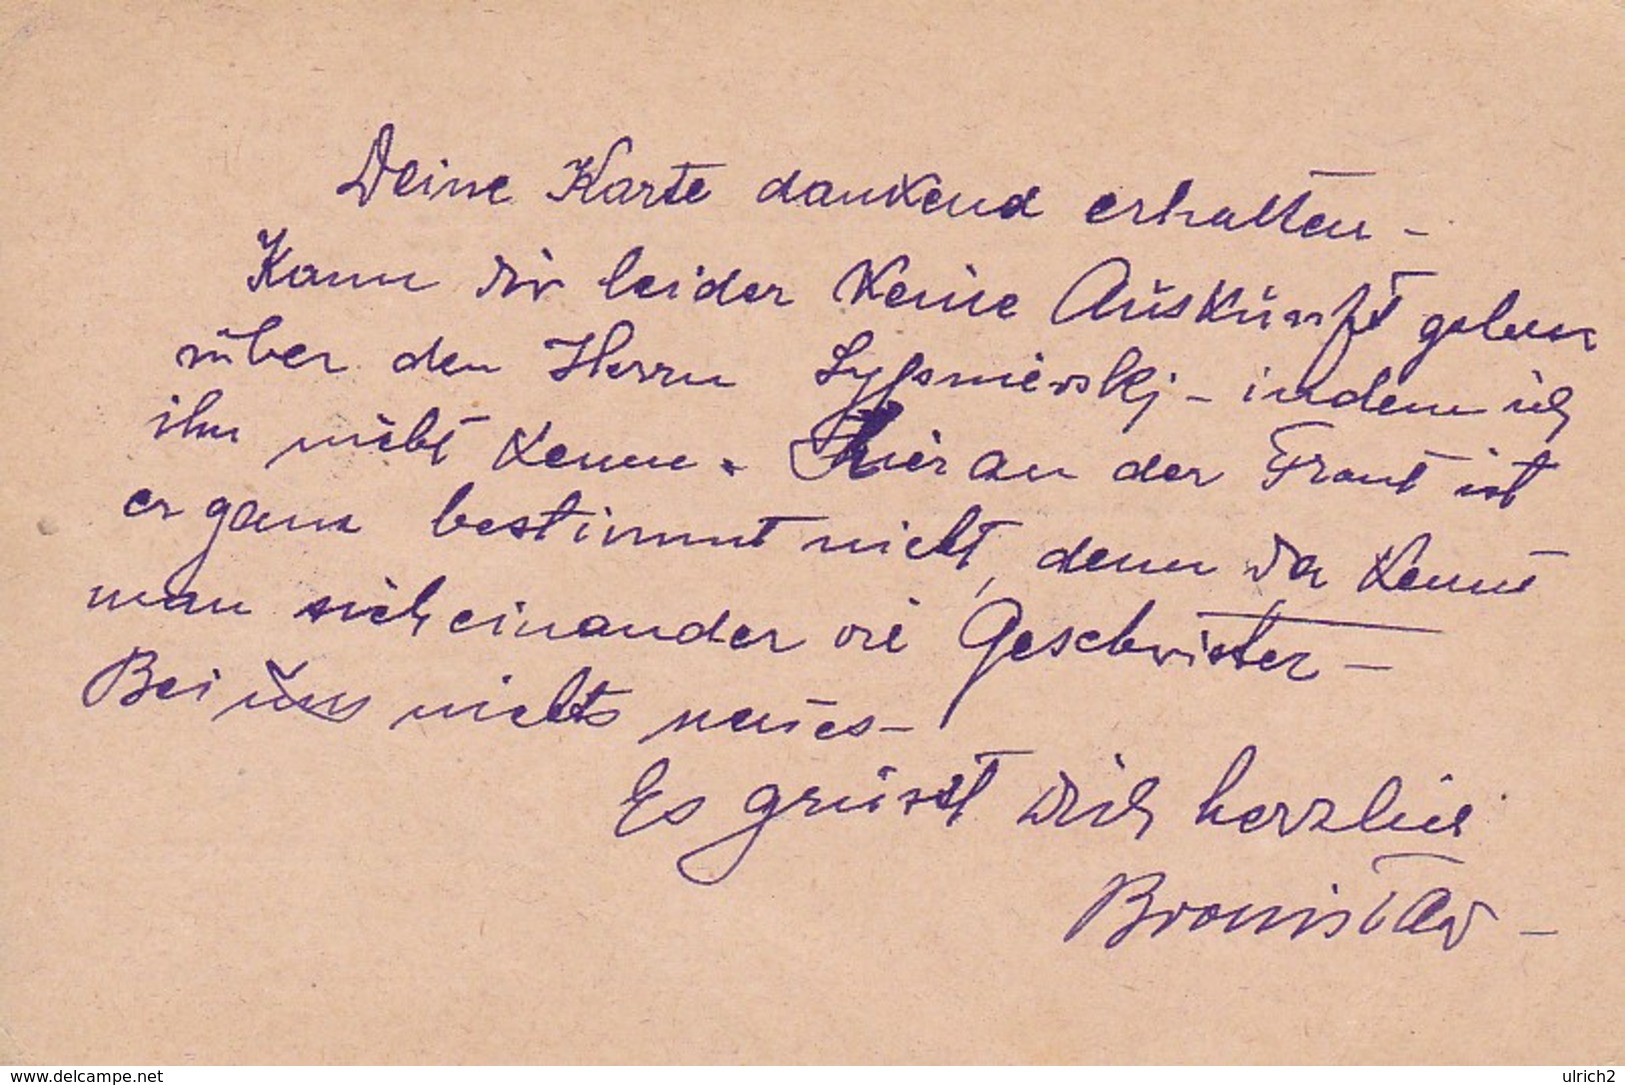 Deine Karte dankend erhalten –
Kann dir leider keine Auskunft geben
über den Herrn – indem ich
ihn nicht kenne. Hier an der Front ist
er ganz bestimmt nicht, denn da kennt
man sich einander wie Geschwister –
Bei uns nichts neues –
Es grüsst dich herzlich
Bronislav –
www.delcampe.net
ulrich2